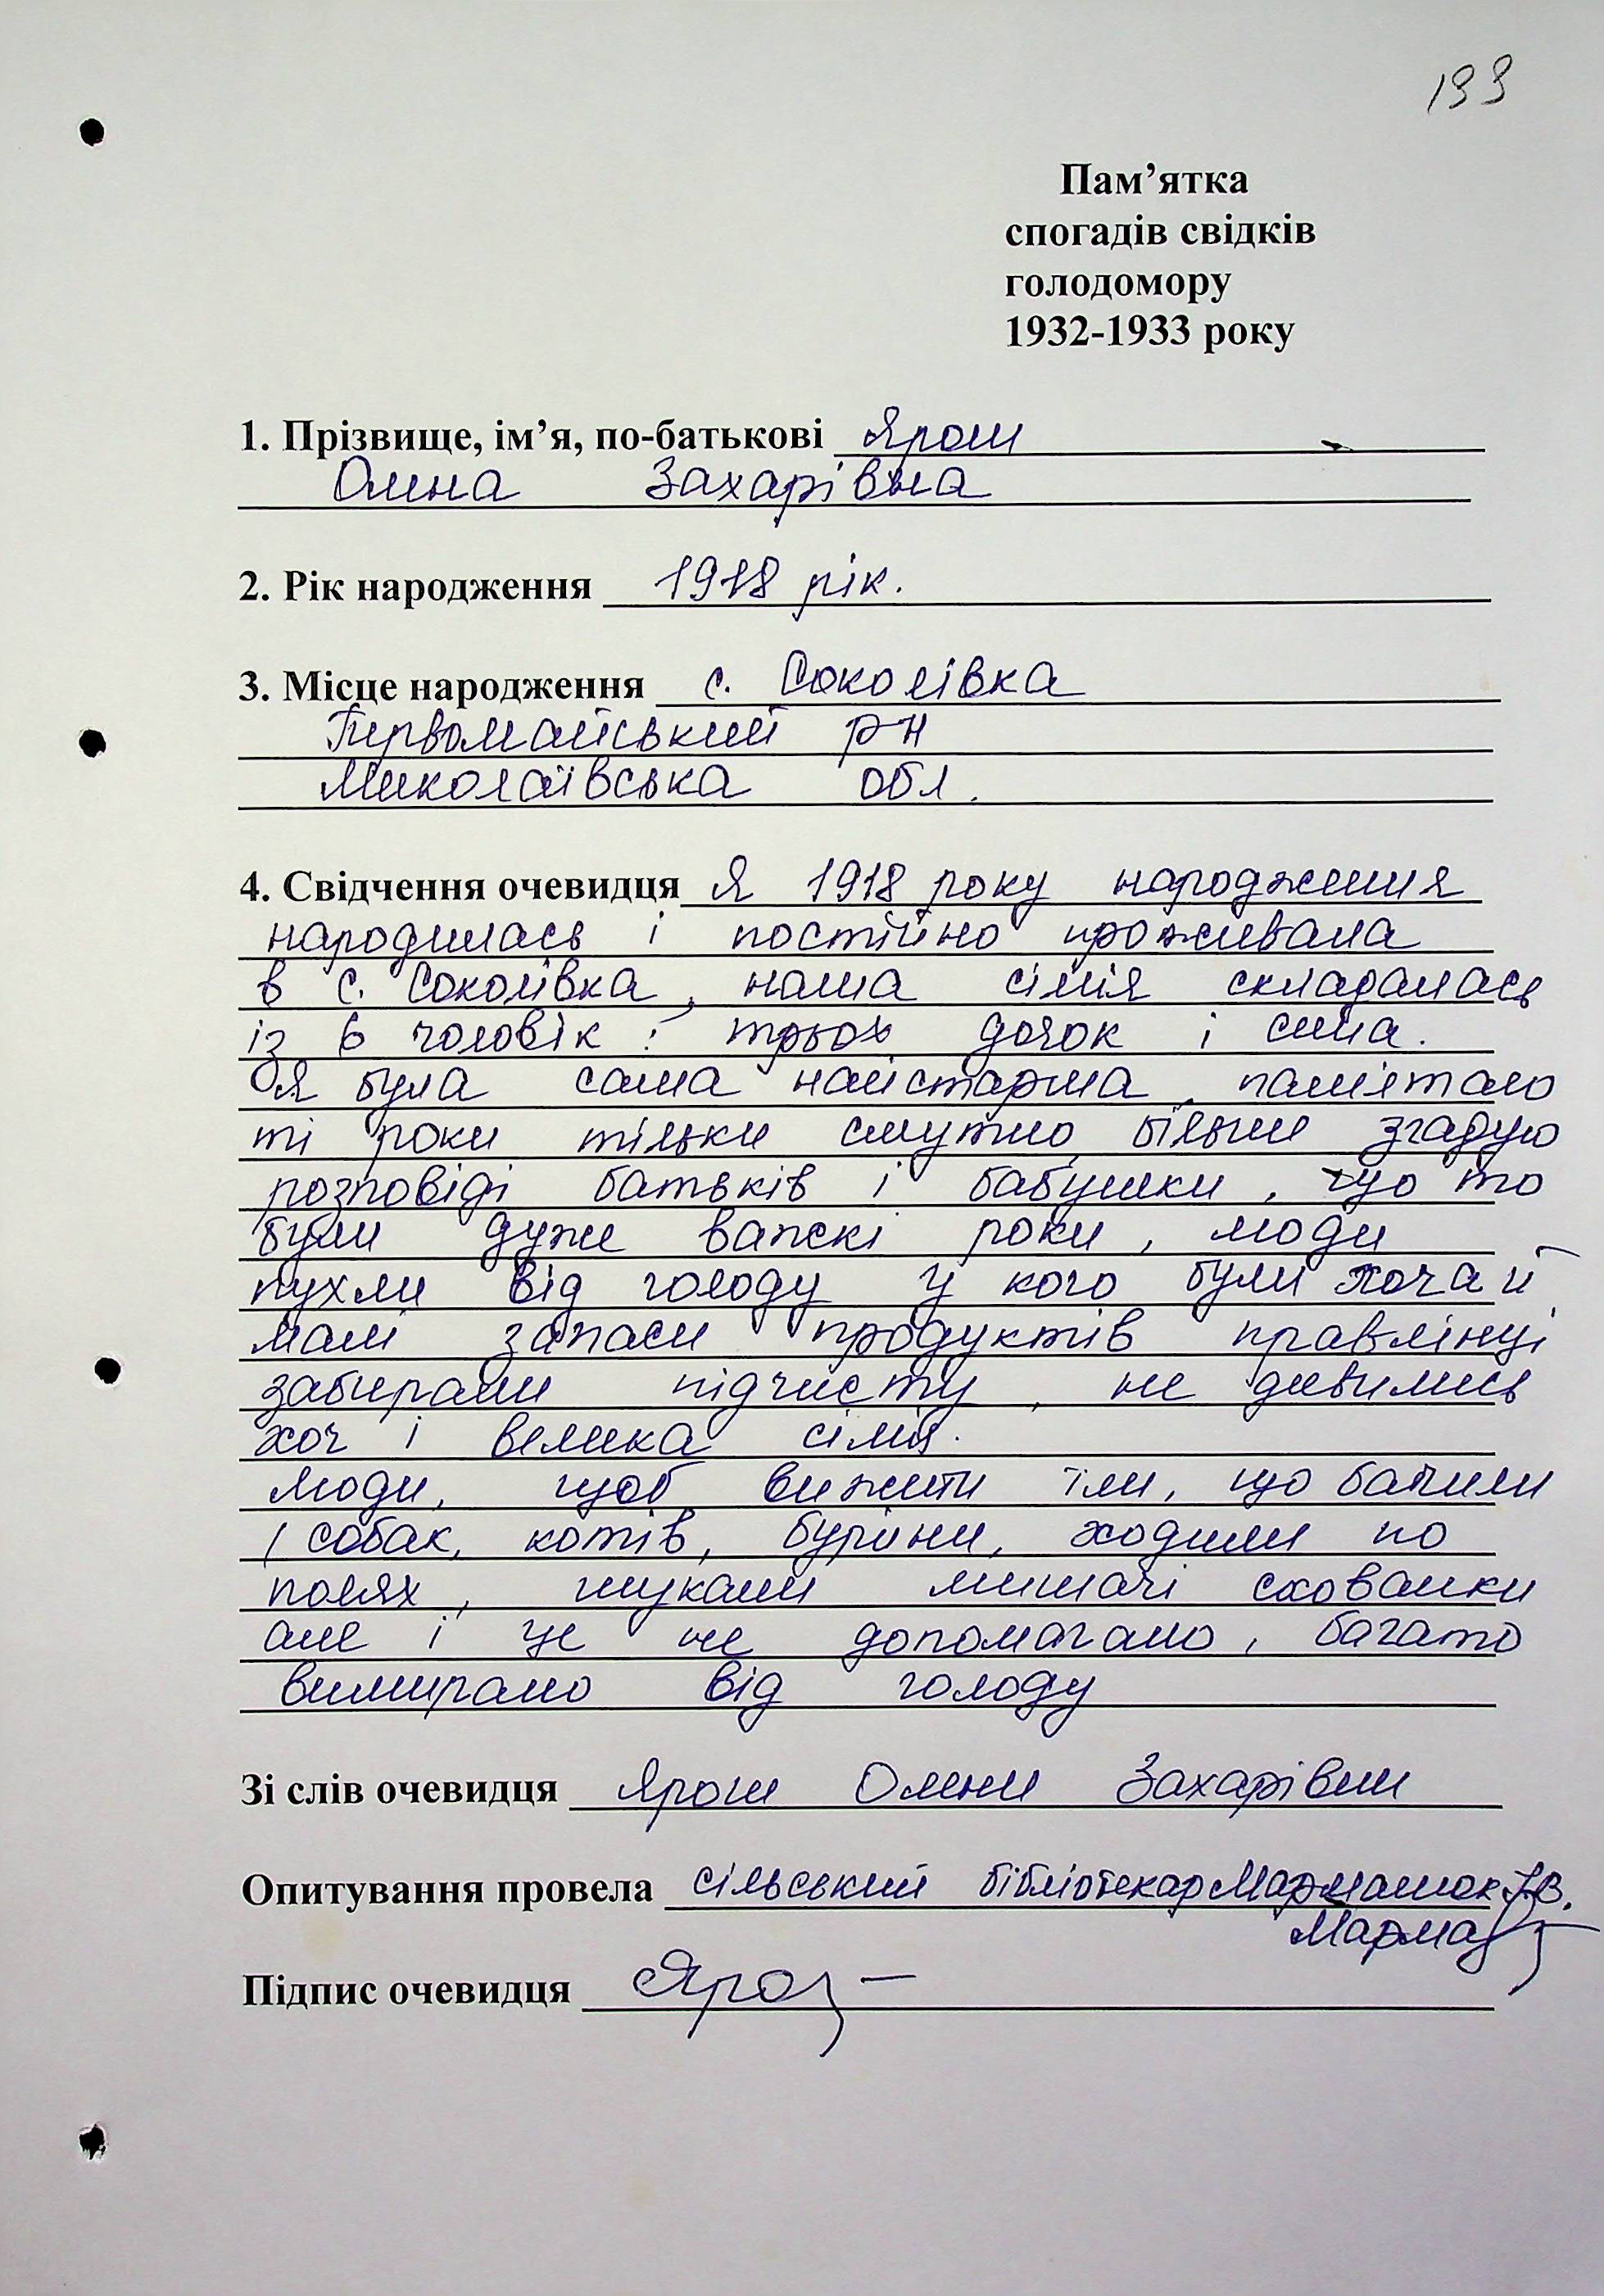 133
Пам’ятка
спогадів свідків
голодомору
1932-1933 року
1. Прізвище, ім’я, по-батькові Ярош
Олена Захарівна
2. Рік народження 1918 рік.
3. Місце народження с. Соколівка
Первомайський р-н
Миколаївська обл.
4. Свідчення очевидця Я 1918 року народження
народилась і постійно проживала
в с. Соколівка, наша сімія складалась
із 6 чоловік: трьох дочок і сина.
Я була сама найстарша, памʼятаю
ті роки тільки смутно, більше згадую
розповіді батьків і бабушки, що то
були дуже важкі роки, люди
пухли від голоду у кого були хоча й
малі запаси продуктів правлінці
забирали підчисту, не дивились
хоч і велика сімія.
Люди, щоб вижити їли, що бачили
і собак, котів, буряни, ходили по
полях, шукали мишачі схованки
але і це не допомагало, багато
вимирало від голоду
Зі слів очевидця Ярош Олени Захарівни
Опитування провела сільський бібліотекар
Підпис очевидця Яро